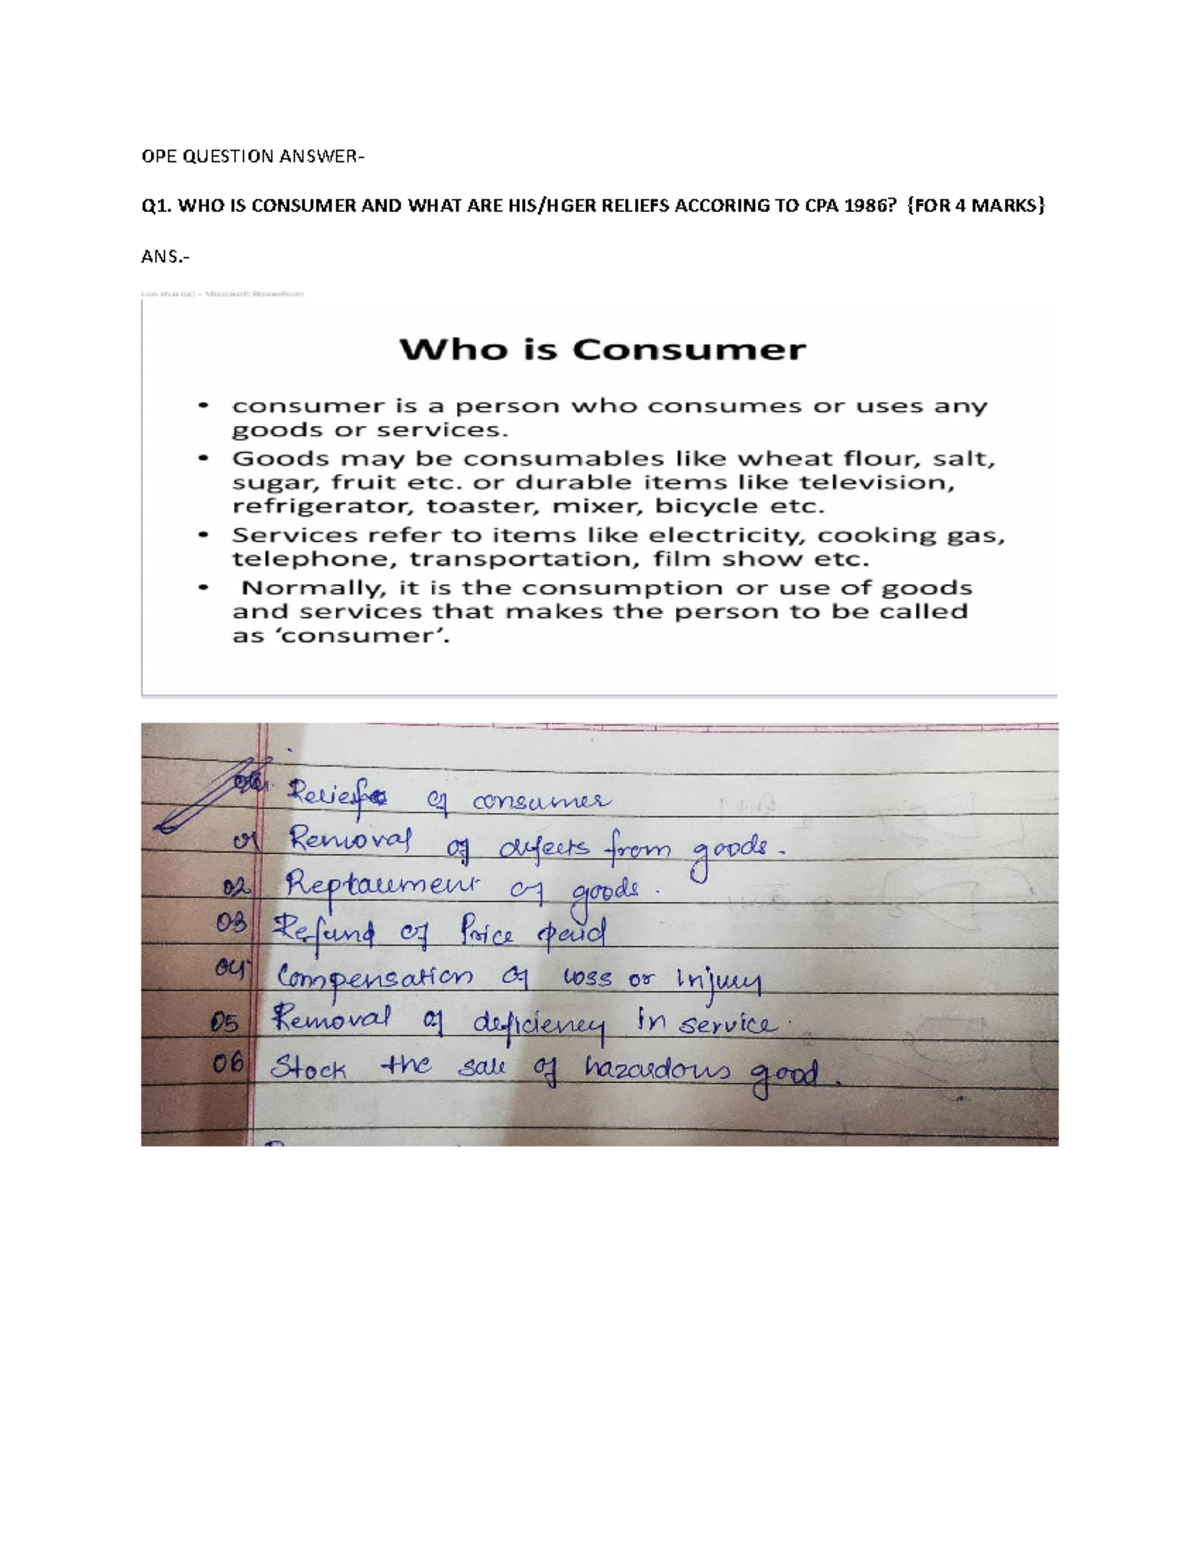 OPE QUESTION ANSWER-
Q1. WHO IS CONSUMER AND WHAT ARE HIS/HGER RELIEFS ACCORING TO CPA 1986? {FOR 4 MARKS}
ANS.-
- Microsoft PowerPoint
Who is Consumer
• consumer is a person who consumes or uses any
goods or services.
• Goods may be consumables like wheat flour, salt,
sugar, fruit etc. or durable items like television,
refrigerator, toaster, mixer, bicycle etc.
• Services refer to items like electricity, cooking gas,
telephone, transportation, film show etc.
• Normally, it is the consumption or use of goods
and services that makes the person to be called
as ‘consumer’.
Reliefs of consumer
01 Removal of defects from goods.
02 Replacement of goods.
03 Refund of Price paid
04 Compensation of loss or injury
05 Removal of deficiency in service.
06 Stock the sale of hazardous good.